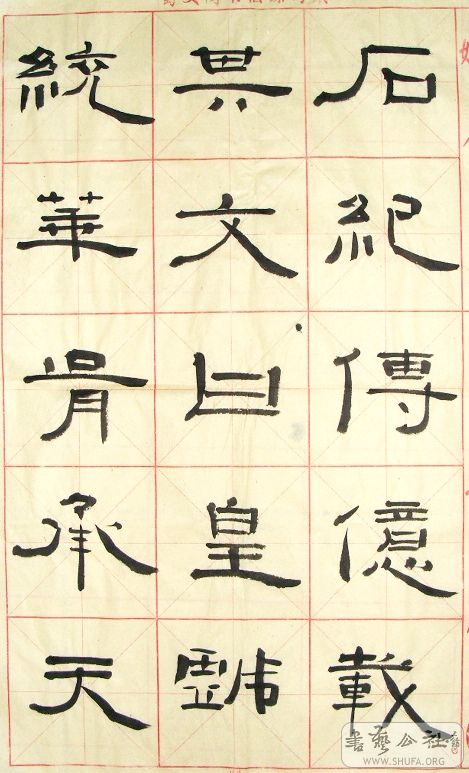 石紀傳億載
其文曰皇戲
統華胥承天
書藝公社
WWW.SHUFA.ORG